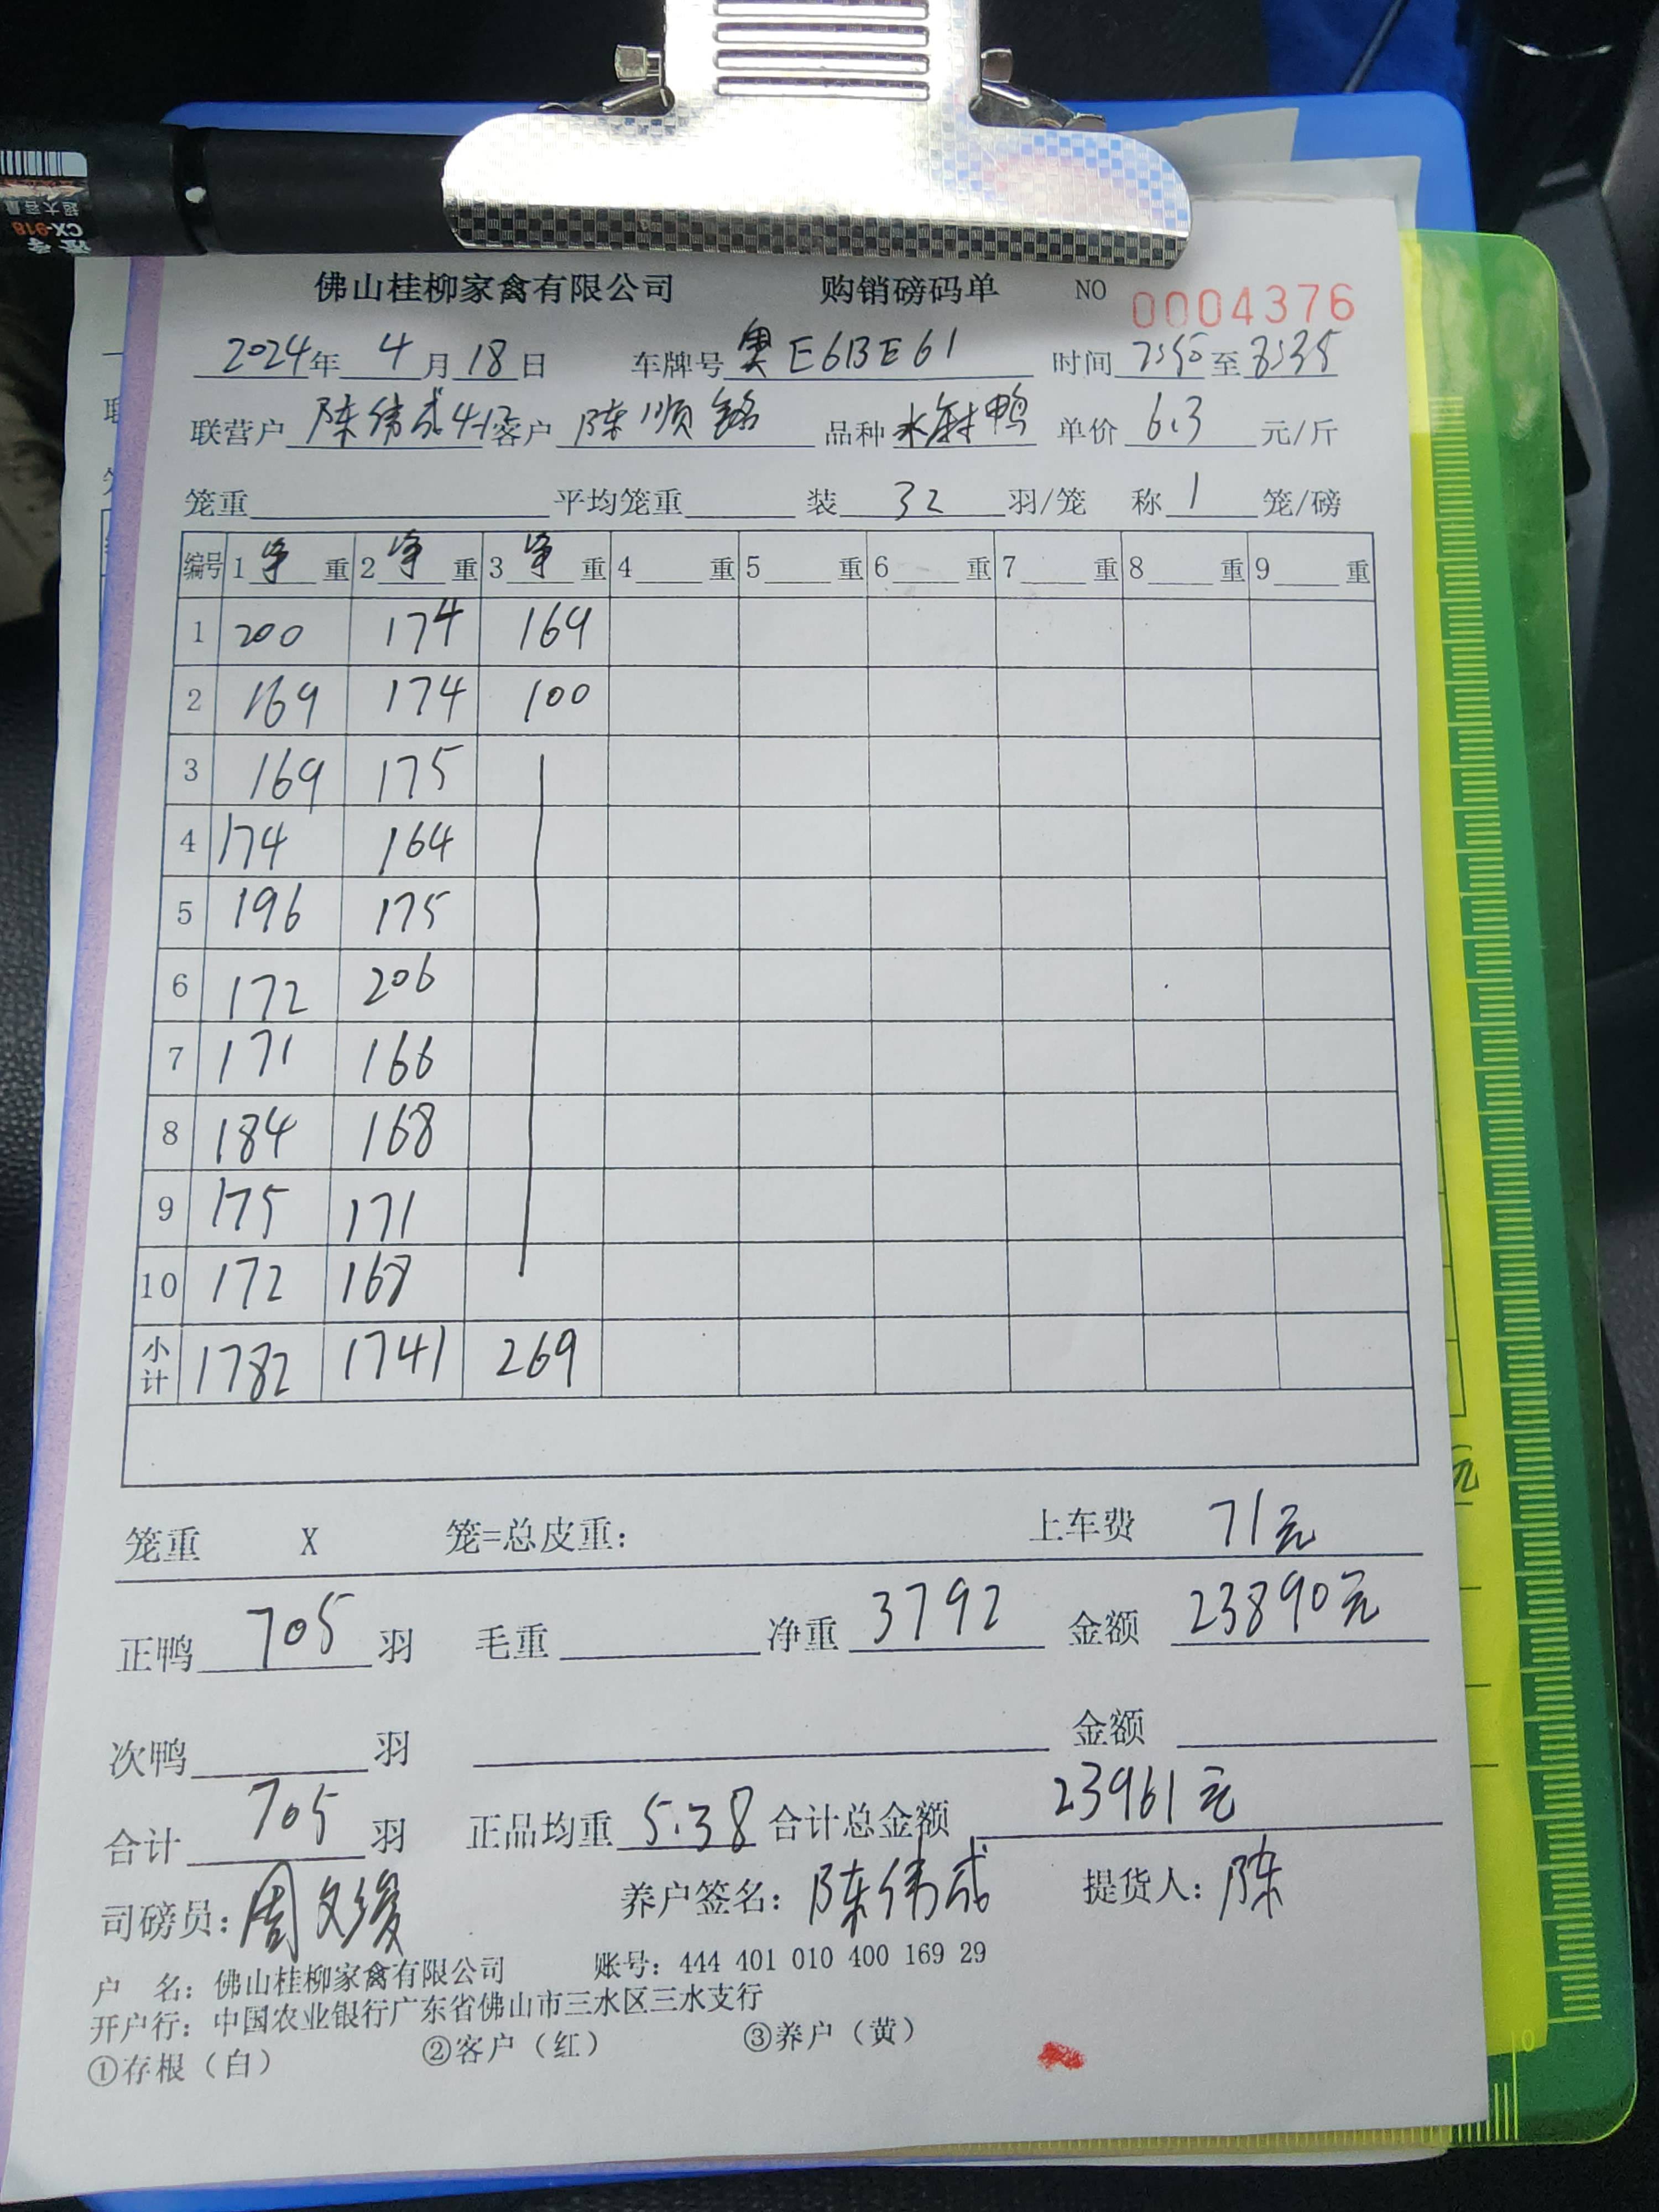 CX-918
超大容量
佛山桂柳家禽有限公司 购销磅码单 NO 0004376
2024年 4月18日 车牌号 粤E6BE61 时间 7:50至8:35
联营户 陈伟成4-1 客户 陈顺铭 品种 水鸭 单价 6.3 元/斤
笼重 平均笼重 装 32 羽/笼 称 1 笼/磅
编号 1净重 2净重 3净重 4重 5重 6重 7重 8重 9重
1 200 174 169
2 169 174 100
3 169 175
4 174 164
5 196 175
6 172 206
7 171 166
8 184 168
9 175 171
10 172 168
小计 1782 1741 269
笼重 X 笼=总皮重： 上车费 71元
正鸭 705 羽 毛重 净重 3792 金额 23890元
次鸭 羽 金额
合计 705 羽 正品均重 5.38 合计总金额 23961元
司磅员：周文俊 养户签名：陈伟成 提货人：陈
户 名：佛山桂柳家禽有限公司 账号：444 401 010 400 169 29
开户行：中国农业银行广东省佛山市三水区三水支行
①存根（白） ②客户（红） ③养户（黄）